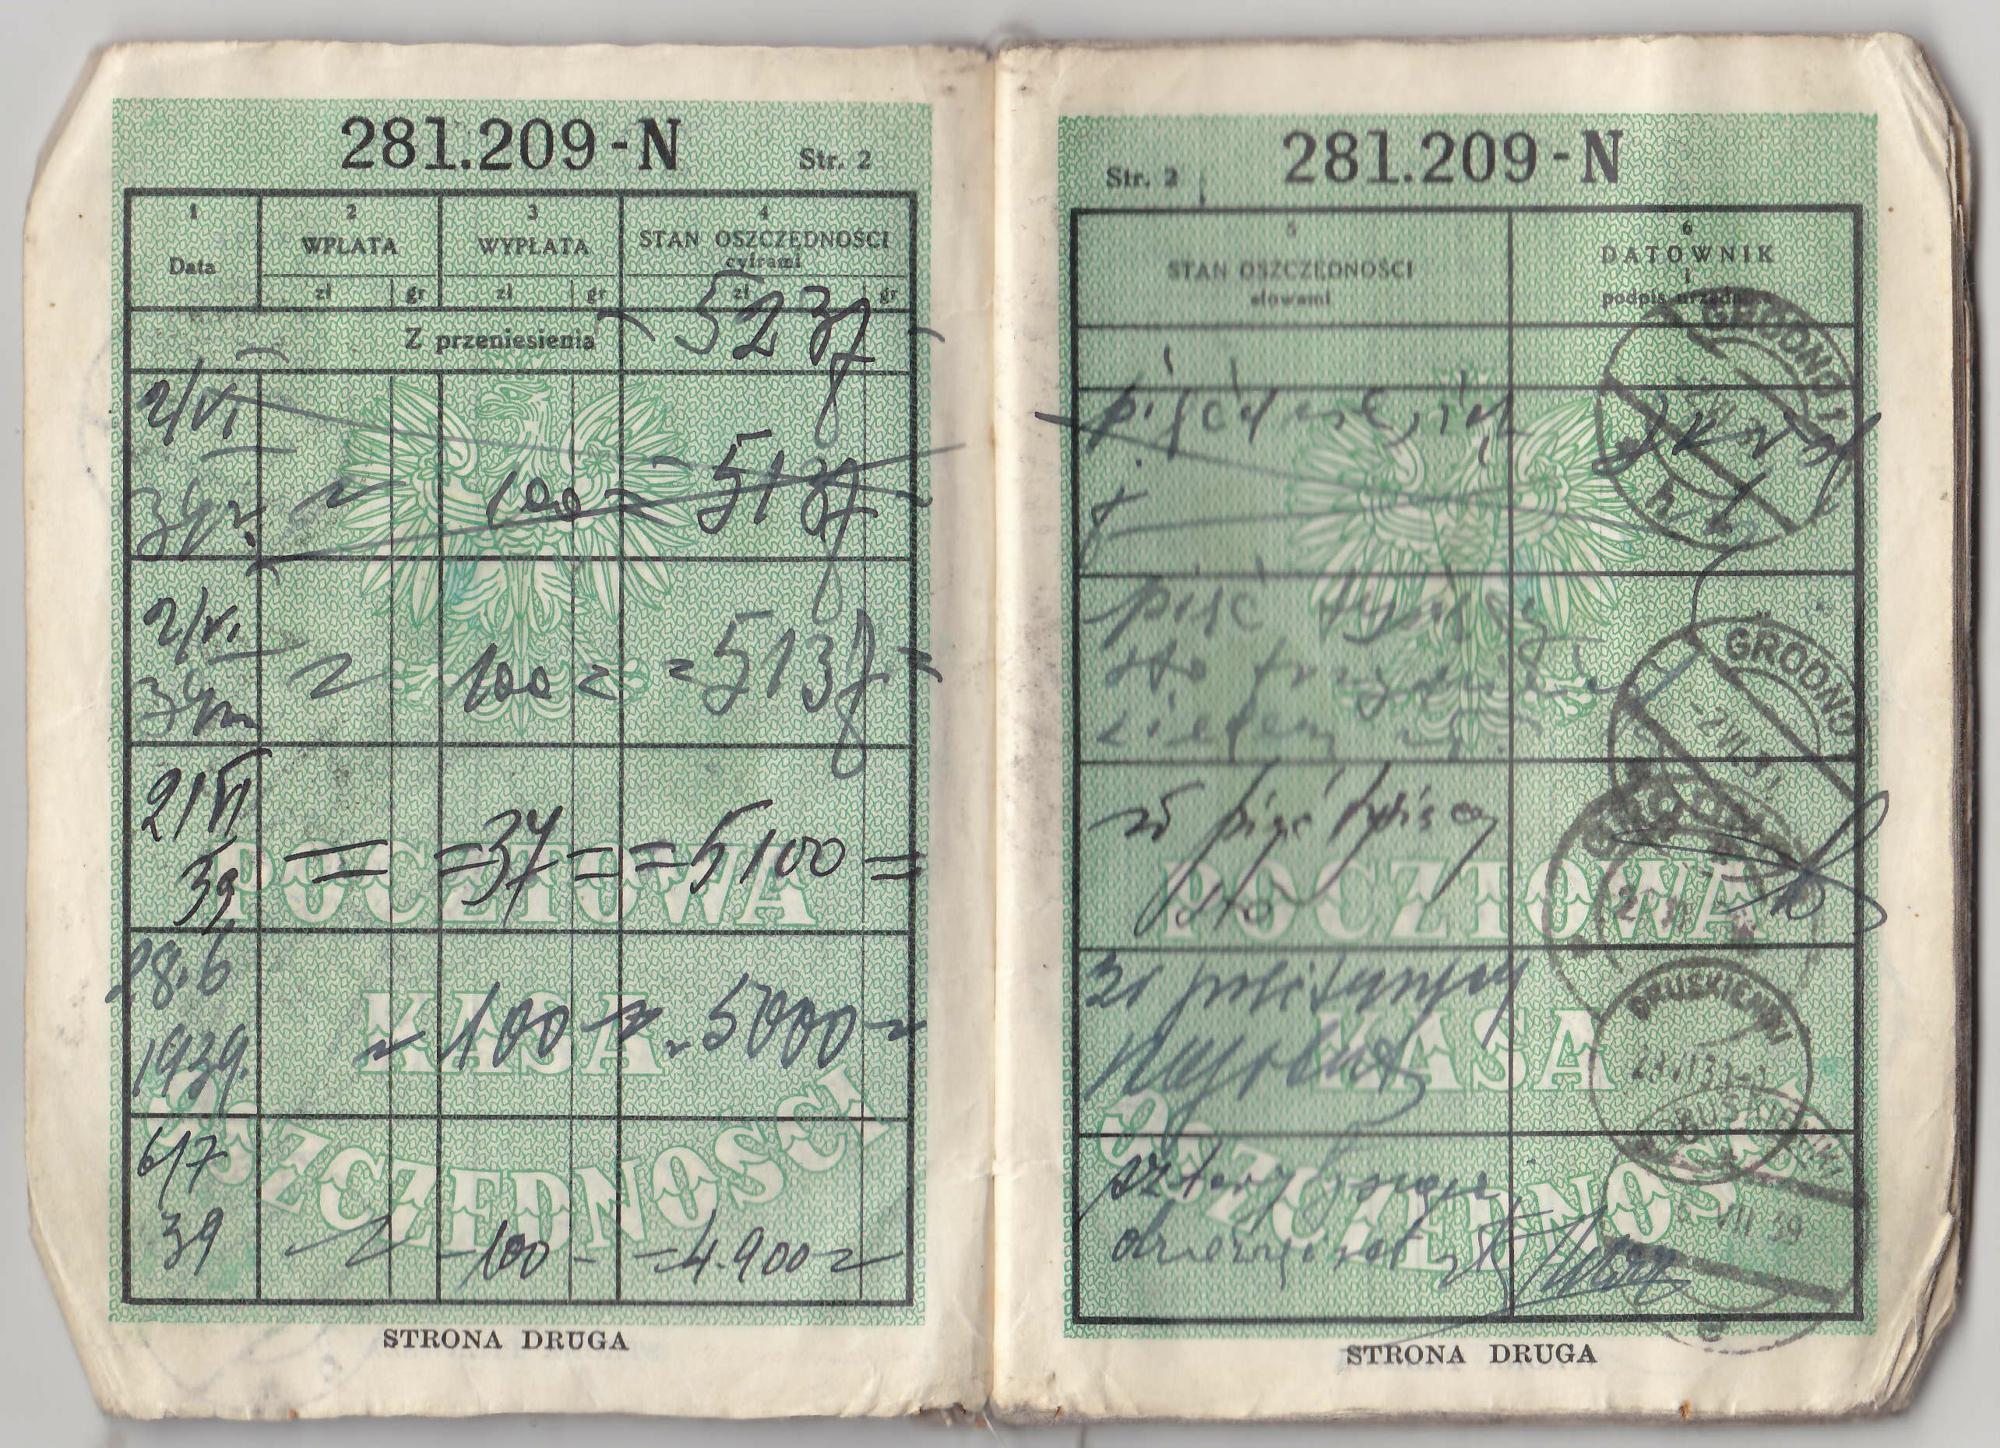 281.209-N
Str. 2
1
Data
2
WPŁATA
zł gr
3
WYPŁATA
zł gr
4
STAN OSZCZĘDNOŚCI
cyframi
zł gr
Z przeniesienia 5237
2/VI
39 100 = 5137
2/VI
39 100 = = 5137 =
2/VI
39 = = 37 = = 5100 =
28.6
1939. 100 5000
6/7
39 - 100 - - 4.900
POCZTOWA
KASA
OSZCZĘDNOŚCI
STRONA DRUGA
Str. 2
281.209-N
5
STAN OSZCZĘDNOŚCI
słowami
6
DATOWNIK
i
podpis urzędn.
pięć tysięcy
sto trzydzieści
siedem zł
zł pięć tysięcy
sto
zł pięć tysięcy
cztery tysiące
dziewięćset zł
GRODNO 1
GRODNO
-2 VI 39
DRUSKIENIKI
28 VI 39
DRUSKIENIKI
6 VII 39
POCZTOWA
KASA
OSZCZĘDNOŚCI
STRONA DRUGA